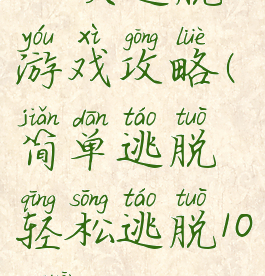 yóu xì gōng lüè
游戏攻略(
jiǎn dān táo tuō
简单逃脱
qīng sōng táo tuō
轻松逃脱10